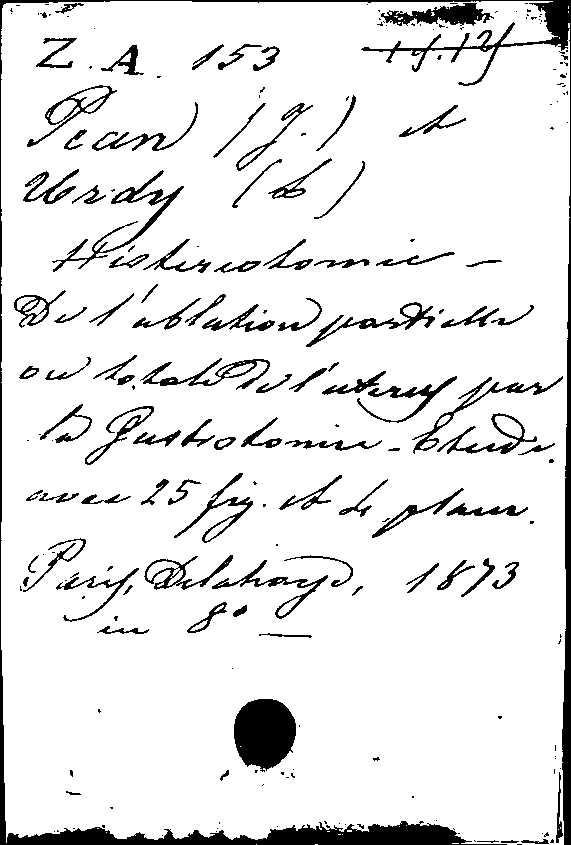 Z. A. 153
Péan (J.) et
Urdy (L)
Histereotomie —
De l'ablation partielle
ou totale De l'uterus par
la Gastrotomie - Etude.
avec 25 fig. et
Paris, Delahaye, 1873
in 8° —